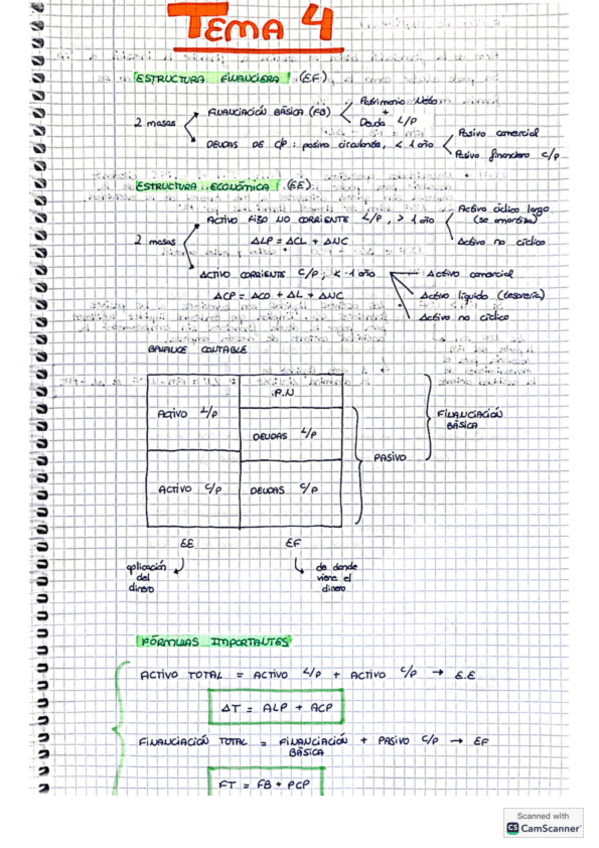 TEMA 4
ESTRUCTURA FINANCIERA (EF)
2 masas
FINANCIACIÓN BÁSICA (FB)
Patrimonio Neto
+
Deuda L/P
DEUDAS DE C/P: pasivo circulante, < 1 año
Pasivo comercial
Pasivo financiero C/P
ESTRUCTURA ECONÓMICA (EE)
2 masas
ACTIVO FIJO NO CORRIENTE L/P, > 1 año
Activo cíclico largo
(se amortiza)
Activo no cíclico
ALP = ACL + ANC
ACTIVO CORRIENTE C/P, < 1 año
Activo comercial
Activo líquido (tesorería)
Activo no cíclico
ACP = ACO + AL + ANC
BALANCE CONTABLE
ACTIVO L/P
P.N
DEUDAS L/P
ACTIVO C/P
DEUDAS C/P
PASIVO
FINANCIACIÓN
BÁSICA
EE
EF
aplicación
del
dinero
de donde
viene el
dinero
FÓRMULAS IMPORTANTES
ACTIVO TOTAL = ACTIVO L/P + ACTIVO C/P → E.E
AT = ALP + ACP
FINANCIACIÓN TOTAL = FINANCIACIÓN BÁSICA + PASIVO C/P → EF
FT = FB + PCP
Scanned with
CS CamScanner